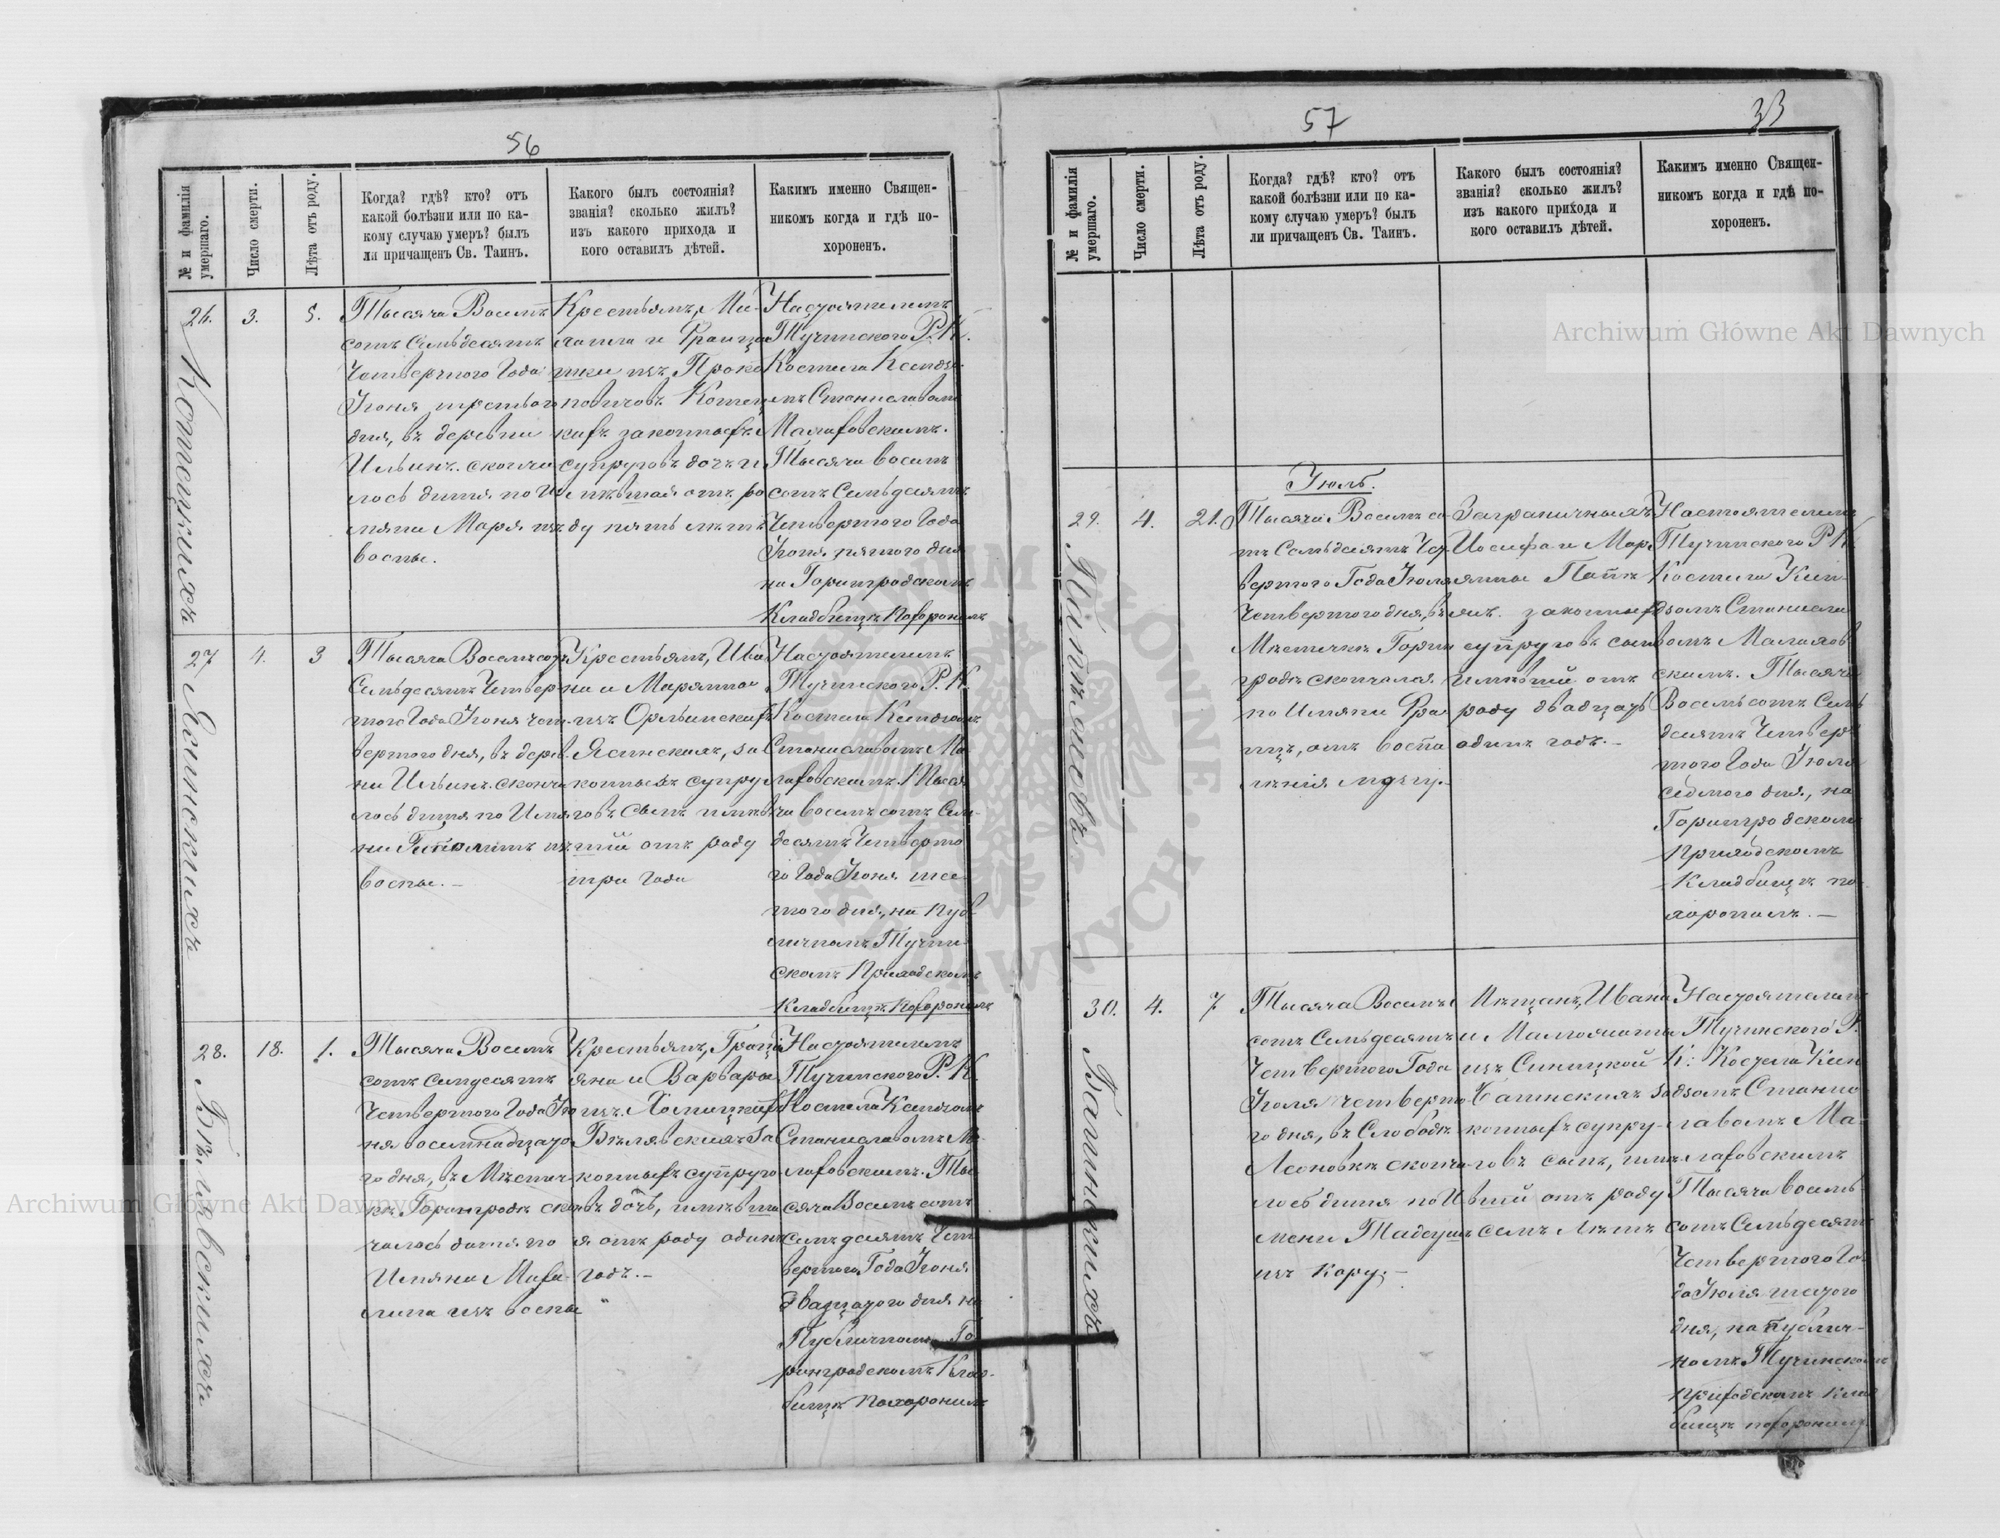 56
№ и фамилія умершаго.
Число смерти.
Лѣта отъ роду.
Когда? гдѣ? кто? отъ
какой болѣзни или по ка-
кому случаю умеръ? былъ
ли причащенъ Св. Таинъ.
Какого былъ состоянія?
званія? сколько жилъ?
изъ какого прихода и
кого оставилъ дѣтей.
Какимъ именно Священ-
никомъ когда и гдѣ по-
хороненъ.
26.
3.
5.
Тысяча Восемъ
сотъ Семьдесятъ
Четвертого Года
Іюня третьего
дня, въ деревни
Ильинъ. сконча
лось дитя по И
мяни Маря изъ
воспы.
Крестьянъ, Ми-
хаила и Францы
шки изъ Проко
повичовъ
законныхъ
супруговъ дочъ и
мѣвшая отъ ро
ду пять лѣтъ
Настоятелемъ
Тучинского Р. К.
Костела Ксендзо-
мъ Станиславомъ
Малаховскимъ.
Тысяча восемъ
сотъ Семьдесятъ
Четвертого Года
Іюня пятого дня
на Горинградскомъ
Кладбищѣ Похоронилъ
27
4.
3
Ясинскихъ
Тысяча Восемъсотъ
Семьдесятъ Четвер-
того Года Іюня чет-
вертого дня, въ дерев
ни Ильинъ. сконча
лось дитя по Имя
ни Гиполитъ изъ
воспы. —
Крестьянъ, Ива
на и Марянны
изъ Орлинскихъ
Ясинскихъ, за
конныхъ супру
говъ сынъ имѣв
шій отъ роду
три года
Настоятелемъ
Тучинского Р. К.
Костела Ксендзомъ
Станиславомъ Ма
лаховскимъ. Тыся
ча восемъ сотъ Семь-
десятъ Четверто
го Года Іюня шес
того дня, на пуб
личномъ Тучин
скомъ Приходскомъ
Кладбищѣ Похоронилъ
28.
18.
1.
Бѣлявскихъ
Тысяча Восемъ
сотъ Семдесятъ
Четвертого Года Ію
ня восимнадцато
го дня, въ Мѣстеч
кѣ Горинградѣ скон
чалось дитя по
Имяни Миха
лина изъ воспы
Крестьянъ,
яна и Варвары
изъ
Бѣлявскихъ за
конныхъ супруго
въ дочь, имѣвша
я отъ роду одинъ
годъ. —
Настоятелемъ
Тучинского Р. К.
Костела Ксендзомъ
Станиславомъ Ма
лаховскимъ. Ты
сяча Восемъ сотъ
Семъдесятъ Чет
вертого Года Іюня
двадцатого дня на
Публичномъ Го
ринградскомъ Клад-
бищѣ Похоронилъ
57
33
№ и фамилія умершаго.
Число смерти.
Лѣта отъ роду.
Когда? гдѣ? кто? отъ
какой болѣзни или по ка-
кому случаю умеръ? былъ
ли причащенъ Св. Таинъ.
Какого былъ состоянія?
званія? сколько жилъ?
изъ какого прихода и
кого оставилъ дѣтей.
Какимъ именно Священ-
никомъ когда и гдѣ по-
хороненъ.
Іюль.
29.
4.
21.
Тысяча Восемъ со
тъ Семьдесятъ Чет
вертого Года Іюля
Четвертого дня, въ
Мѣстечкѣ Горин
градѣ скончался
по Имяни Фран
цъ, отъ воспа
лѣнія
Заграничныхъ
Иосифа и Мар
янны
законныхъ
супруговъ сынъ
имѣвшій отъ
роду двадцать
одинъ годъ. —
Настоятелемъ
Тучинского Р. К.
Костела Ксен-
дзомъ Станисла
вомъ Малахов
скимъ. Тысяча
Восемьсотъ Семь
десятъ Четвер
того Года Іюля
седмого дня, на
Горинградскомъ
Приходскомъ
Кладбищѣ по
хоронилъ. —
30.
4.
7
Тысяча Восемъ
сотъ Семьдесятъ
Четвертого Года
Іюля четверто
го дня, въ Слободѣ
Леоновкѣ сконча-
лось дитя по И
мени Тадеушъ
изъ кору, —
Мѣщанъ, Ивана
и
изъ
за
конныхъ супру-
говъ сынъ, имѣ
вшій отъ роду
семъ Лѣтъ
Настоятелемъ
Тучинского Р.
К: Костела Ксен
дзомъ Станис
лавомъ Ма-
лаховскимъ
Тысяча Восемь-
сотъ Семьдесятъ
Четвертого Го-
да Іюля шестого
дня, на публич-
номъ Тучинскомъ
Приходскомъ Клад
бищѣ похоронилъ
Archiwum Główne Akt Dawnych
Archiwum Główne Akt Dawnych